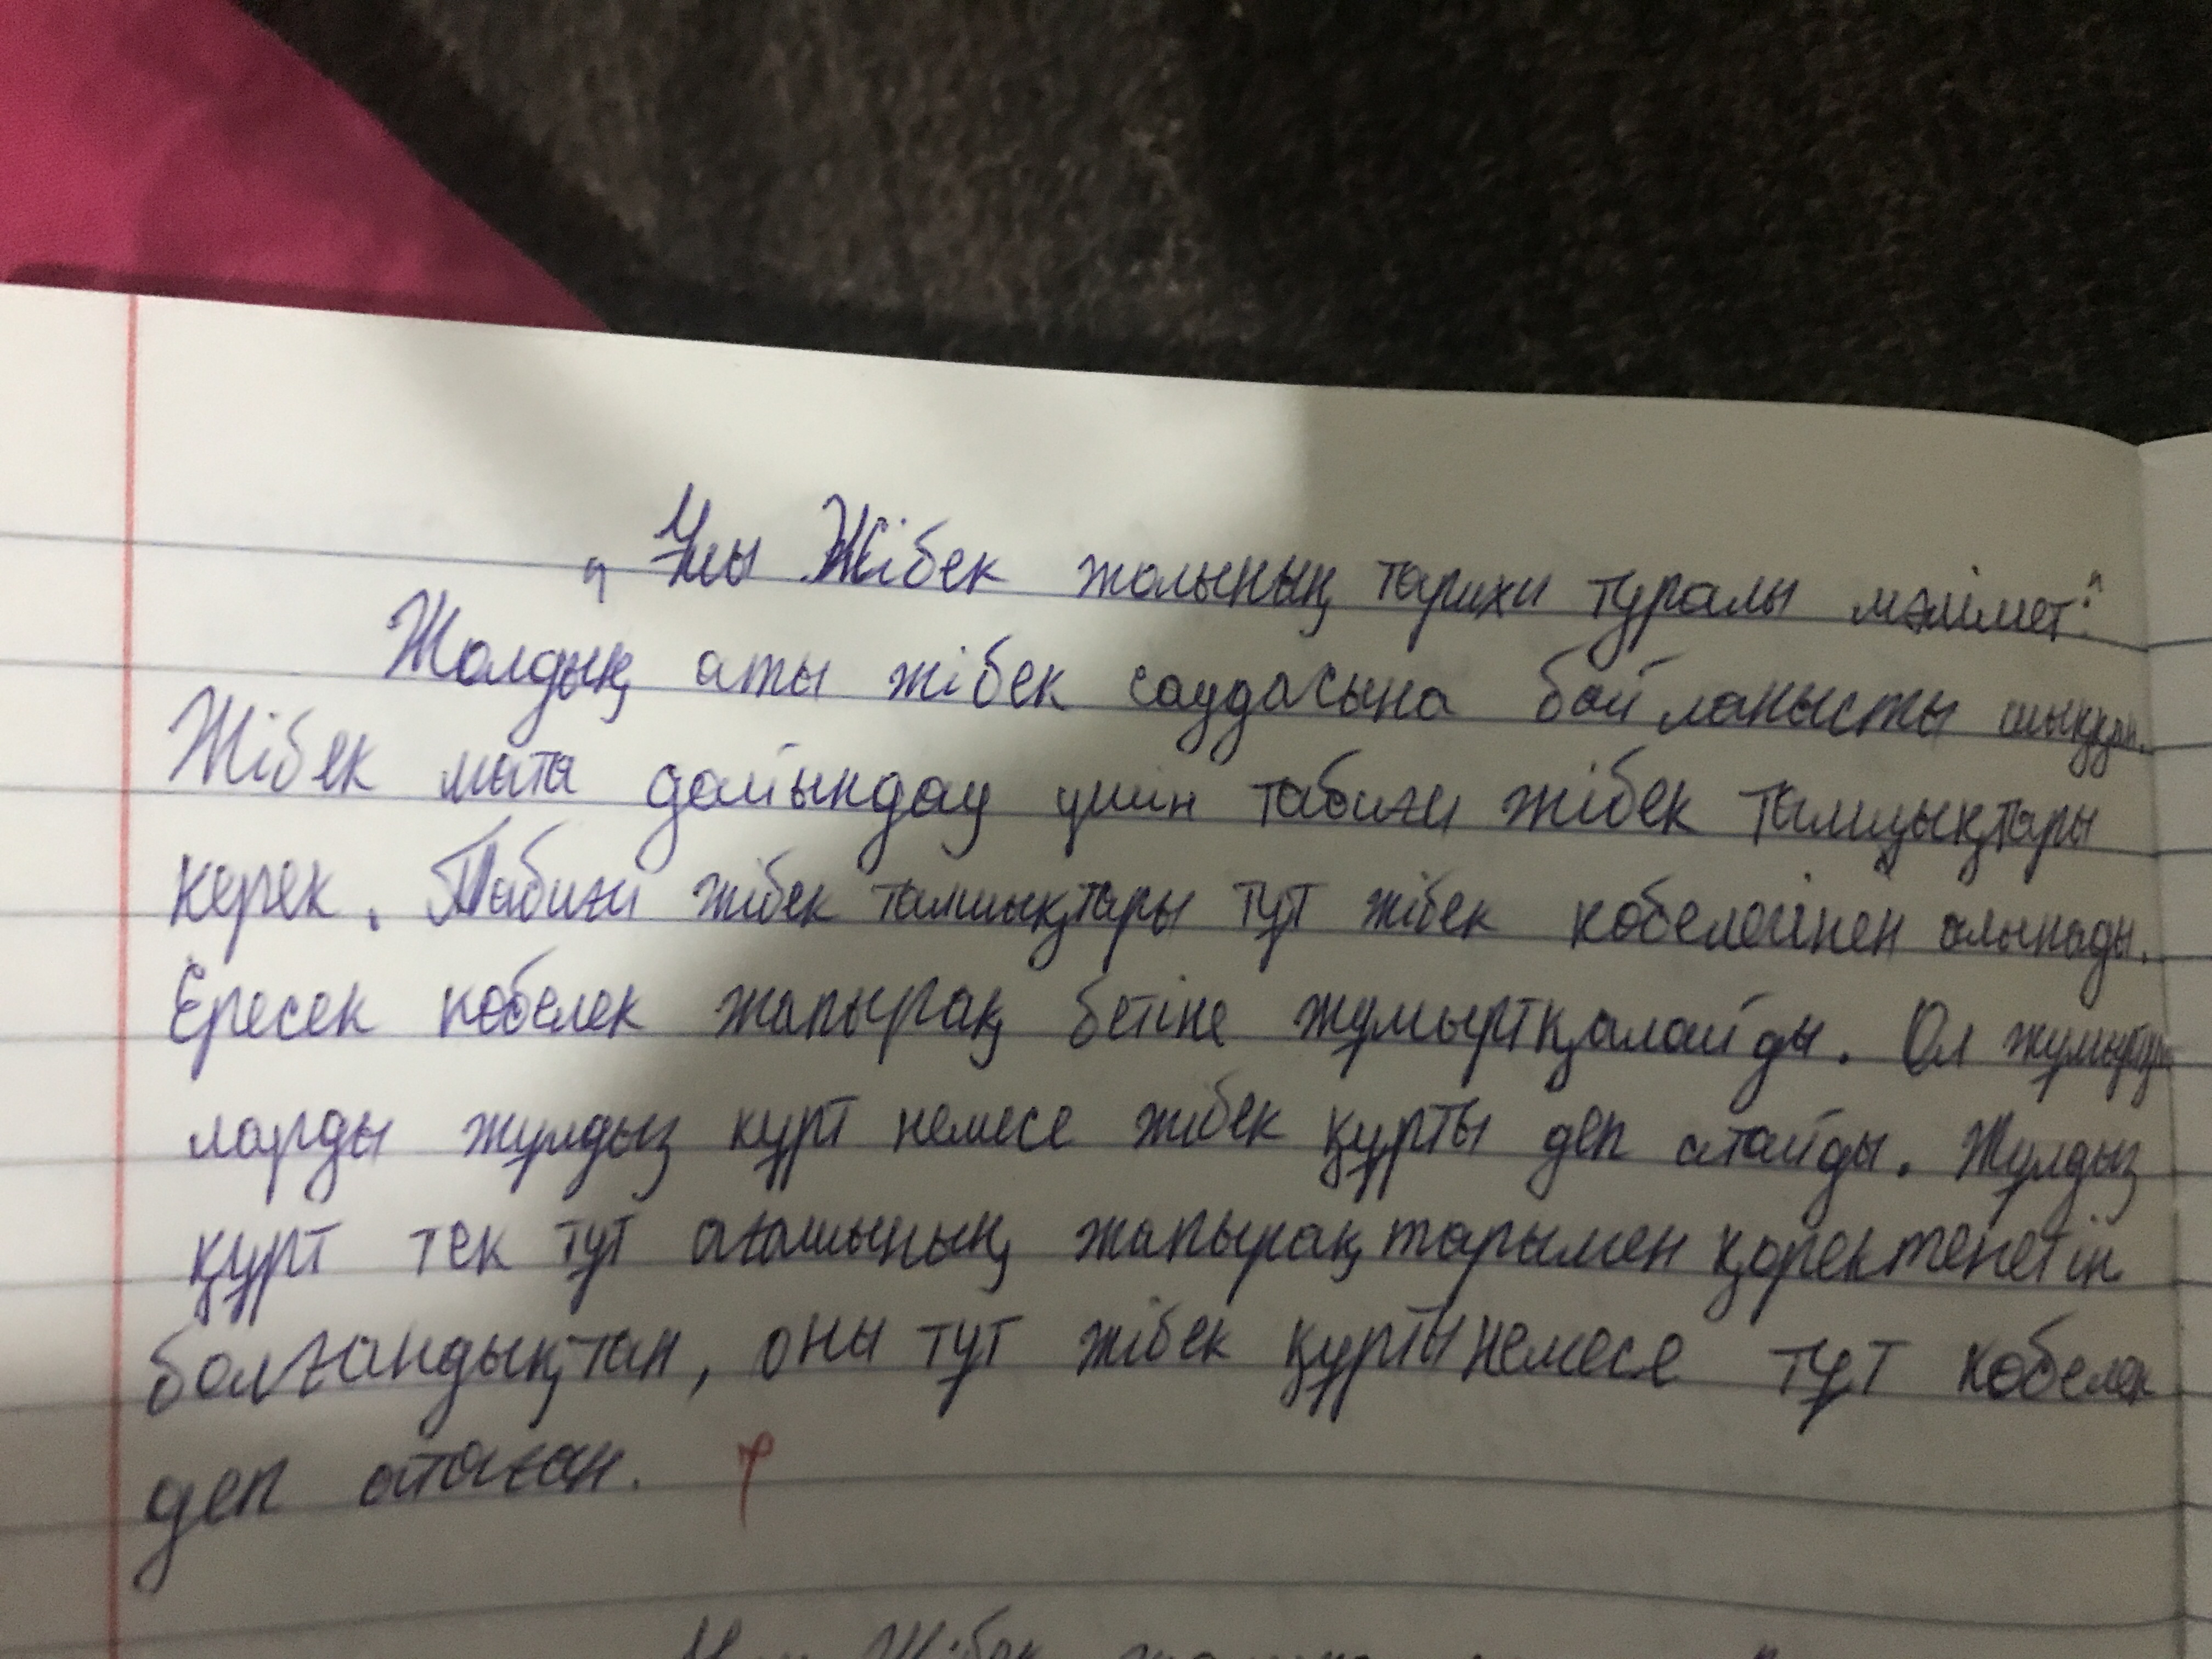 "Ұлы Жібек жолының тарихи туралы мәлімет."
Жолдың аты жібек саудасына байланысты шыққан.
Жібек мата дайындау үшін табиғи жібек талшықтары
керек. Табиғи жібек талшықтары тұт жібек көбелегінен алынады.
Ересек көбелек жапырақ бетіне жұмыртқалайды. Ол жұмыртқа
ларды жұлдыз құрт немесе жібек құрты деп атайды. Жұлдыз
құрт тек тұт ағашының жапырақтарымен қоректенетін
болғандықтан, оны тұт жібек құрты немесе тұт көбелек
деп атаған.
Жібек